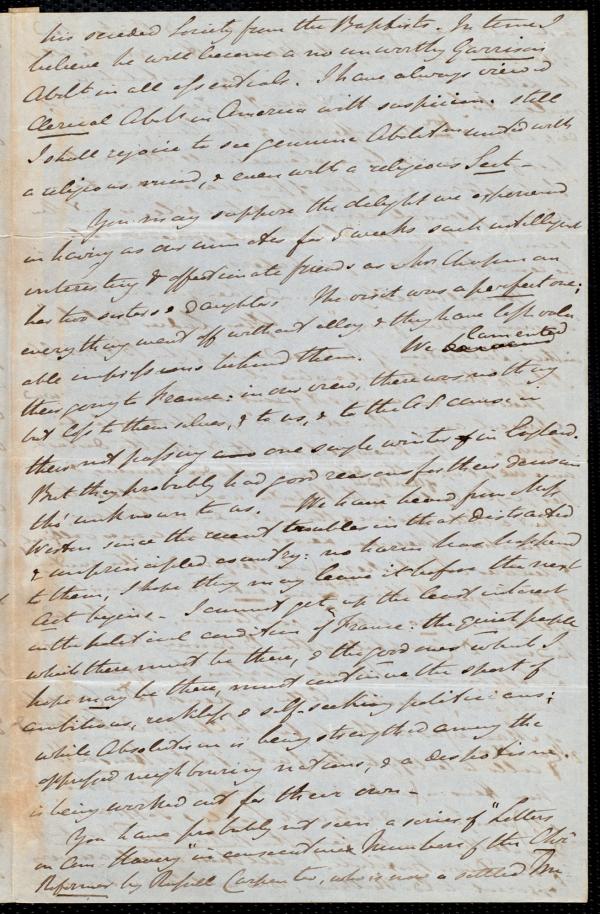 his seceded Society from the Baptists. In time I
believe he will become a no unworthy Garrison
Abolt in all essentials. I have always viewed
Clerical Abolts in America with suspicion. still
I shall rejoice to see genuine Abolitism united with
a religious mind, & even with a religious Sect -
You may suppose the delight we experienced
in having as our inmates for 5 weeks such intelligent
interesting & affectionate friends as Mrs Chapman
her two sisters & daughters. The visit was a perfect one;
everything went off without alloy & they have left valu
able impressions behind them. We lamented
their going to France: in our view, there was nothing
but loss to themselves, & to us, & to the A S cause in
their not passing one single winter in England.
But they probably had good reasons for their decision
tho' unknown to us. We have heard from Miss
Weston since the recent troubles in that distracted
& unprincipled country: no harm has happened
to them, I hope they may leave it before the next
Act begins - I cannot get up the least interest
in the political condition of France: the quiet people
which there must be there, & the good ones which I
hope may be there, must continue the sport of
ambitious, reckless & self-seeking politicians;
while Absolutism is being strengthened among the
oppressed neighbouring nations, & a despotism
is being worked out for their own -
You have probably not seen a series of "Letters
on Am. Slavery" in consecutive Numbers of the Chrn
Reformer by Russell Carpenter, who is now a settled Mi